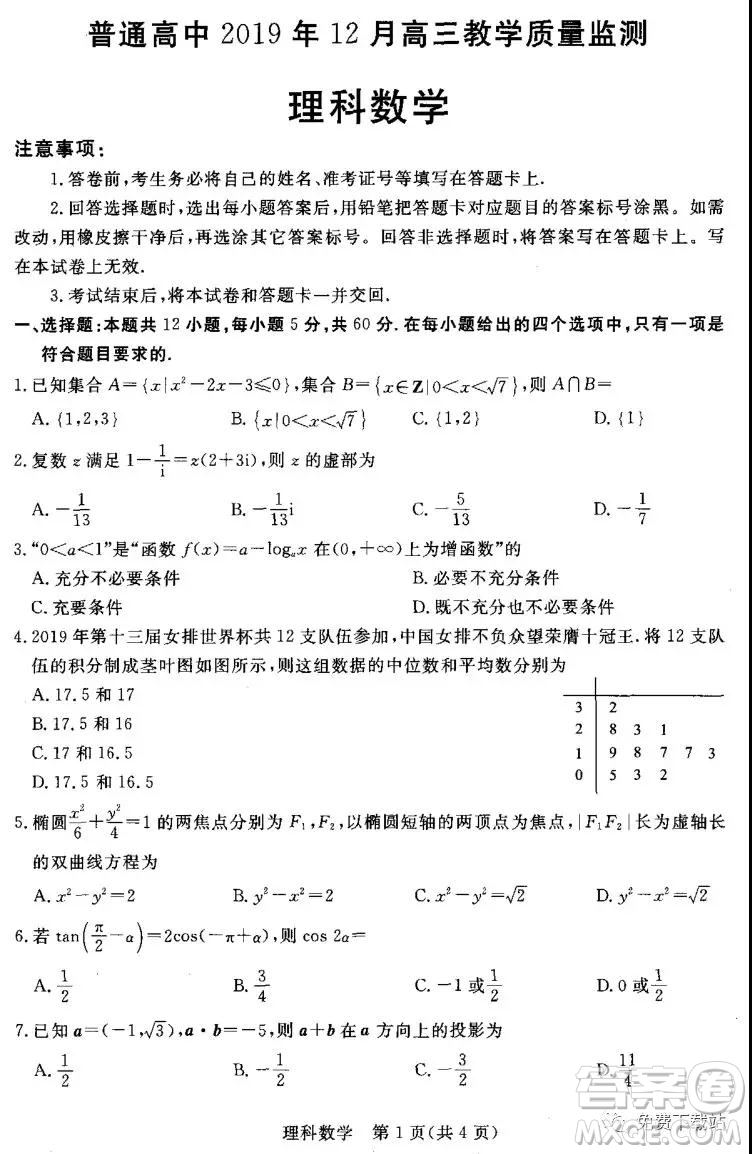 普通高中 2019 年 12 月高三教学质量监测
理科数学
注意事项:
1.答卷前,考生务必将自己的姓名、准考证号等填写在答题卡上.
2.回答选择题时,选出每小题答案后,用铅笔把答题卡对应题目的答案标号涂黑。如需
改动,用橡皮擦干净后,再选涂其它答案标号。回答非选择题时,将答案写在答题卡上。写
在本试卷上无效.
3.考试结束后,将本试卷和答题卡一并交回.
一、选择题:本题共 12 小题,每小题 5 分,共 60 分.在每小题给出的四个选项中,只有一项是
符合题目要求的.
1.已知集合 A={x|x²-2x-3≤0},集合 B={x∈Z|0<x<√7},则 A∩B=
A.{1,2,3} B.{x|0<x<√7} C.{1,2} D.{1}
2.复数 z 满足 1-1/i=z(2+3i),则 z 的虚部为
A.-1/13 B.-1/13 i C.-5/13 D.-1/7
3.“0<a<1”是“函数 f(x)=a-logₐx 在(0,+∞)上为增函数”的
A.充分不必要条件 B.必要不充分条件
C.充要条件 D.既不充分也不必要条件
4.2019 年第十三届女排世界杯共 12 支队伍参加,中国女排不负众望荣膺十冠王.将 12 支队
伍的积分制成茎叶图如图所示,则这组数据的中位数和平均数分别为
A.17.5 和 17
B.17.5 和 16
C.17 和 16.5
D.17.5 和 16.5
3 2
2 8 3 1
1 9 8 7 7 3
0 5 3 2
5.椭圆x²/6+y²/4=1 的两焦点分别为 F₁,F₂,以椭圆短轴的两顶点为焦点,|F₁F₂|长为虚轴长
的双曲线方程为
A.x²-y²=2 B.y²-x²=2 C.x²-y²=√2 D.y²-x²=√2
6.若 tan(π/2-α)=2cos(-π+α),则 cos 2α=
A.1/2 B.3/4 C.-1 或1/2 D.0 或1/2
7.已知 a=(-1,√3),a·b=-5,则 a+b 在 a 方向上的投影为
A.1/2 B.-1/2 C.-3/2 D.11/4
理科数学 第 1 页(共 4 页)
答案卷
免费下载站